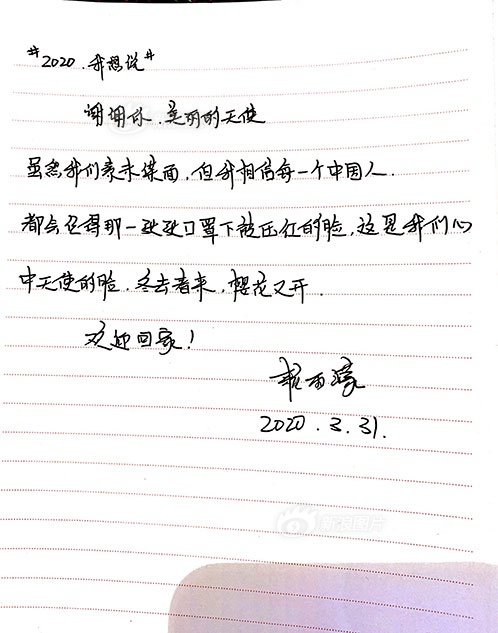 #2020.我想说#
谢谢你.美丽的天使
虽然我们素未谋面,但我相信每一个中国人.
都会记得那一张张口罩下被压红的脸,这是我们心
中天使的脸.冬去春来,樱花又开.
欢迎回家!
2020.3.31.
新浪图片